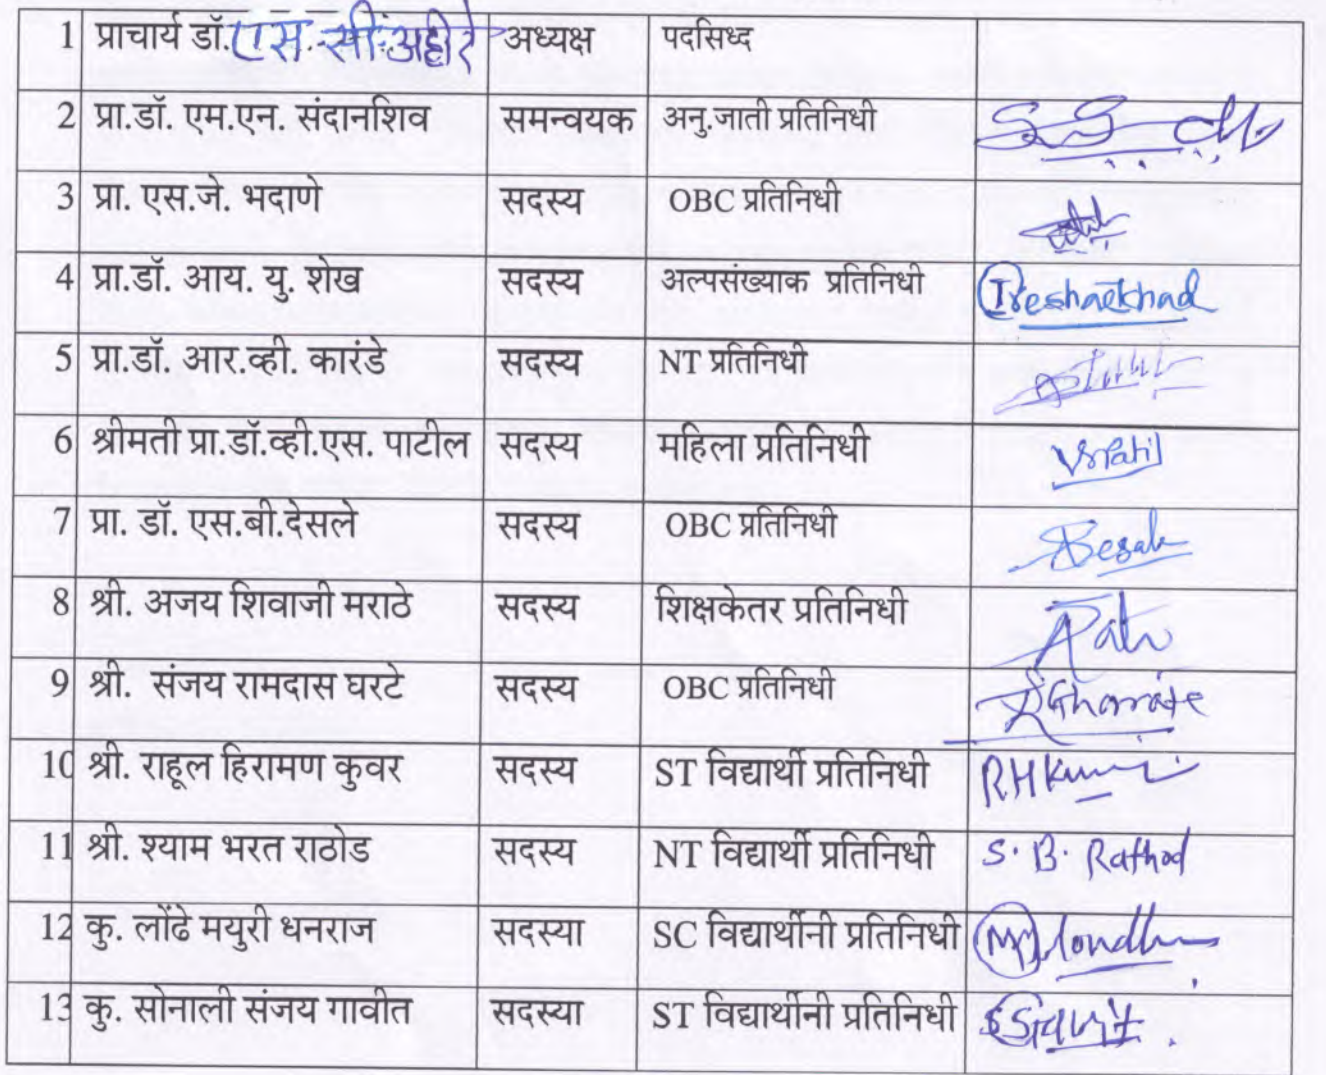 1 प्राचार्य डॉ. एस. सी. अहीरे अध्यक्ष पदसिध्द
2 प्रा.डॉ. एम.एन. संदानशिव समन्वयक अनु.जाती प्रतिनिधी
3 प्रा. एस.जे. भदाणे सदस्य OBC प्रतिनिधी
4 प्रा.डॉ. आय. यु. शेख सदस्य अल्पसंख्याक प्रतिनिधी
5 प्रा.डॉ. आर.व्ही. कारंडे सदस्य NT प्रतिनिधी
6 श्रीमती प्रा.डॉ.व्ही.एस. पाटील सदस्य महिला प्रतिनिधी VSPatil
7 प्रा. डॉ. एस.बी.देसले सदस्य OBC प्रतिनिधी
8 श्री. अजय शिवाजी मराठे सदस्य शिक्षकेतर प्रतिनिधी
9 श्री. संजय रामदास घरटे सदस्य OBC प्रतिनिधी
10 श्री. राहूल हिरामण कुवर सदस्य ST विद्यार्थी प्रतिनिधी
11 श्री. श्याम भरत राठोड सदस्य NT विद्यार्थी प्रतिनिधी S. B. Rathod
12 कु. लोंढे मयुरी धनराज सदस्या SC विद्यार्थीनी प्रतिनिधी
13 कु. सोनाली संजय गावीत सदस्या ST विद्यार्थीनी प्रतिनिधी